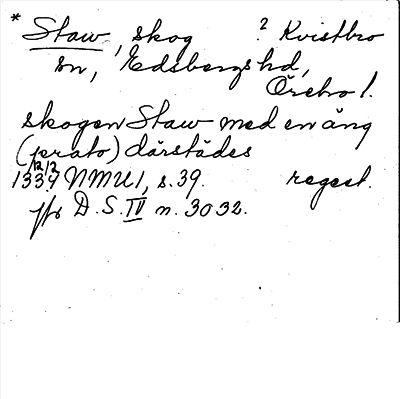 * Staw, skog ? Kvistbro
sn, Edsbergs hd,
Örebro l.
skogen Staw med en äng
(prato) därstädes
12/2
1337 NMU 1, s. 39. regest.
jfr D.S. IV n. 3032.